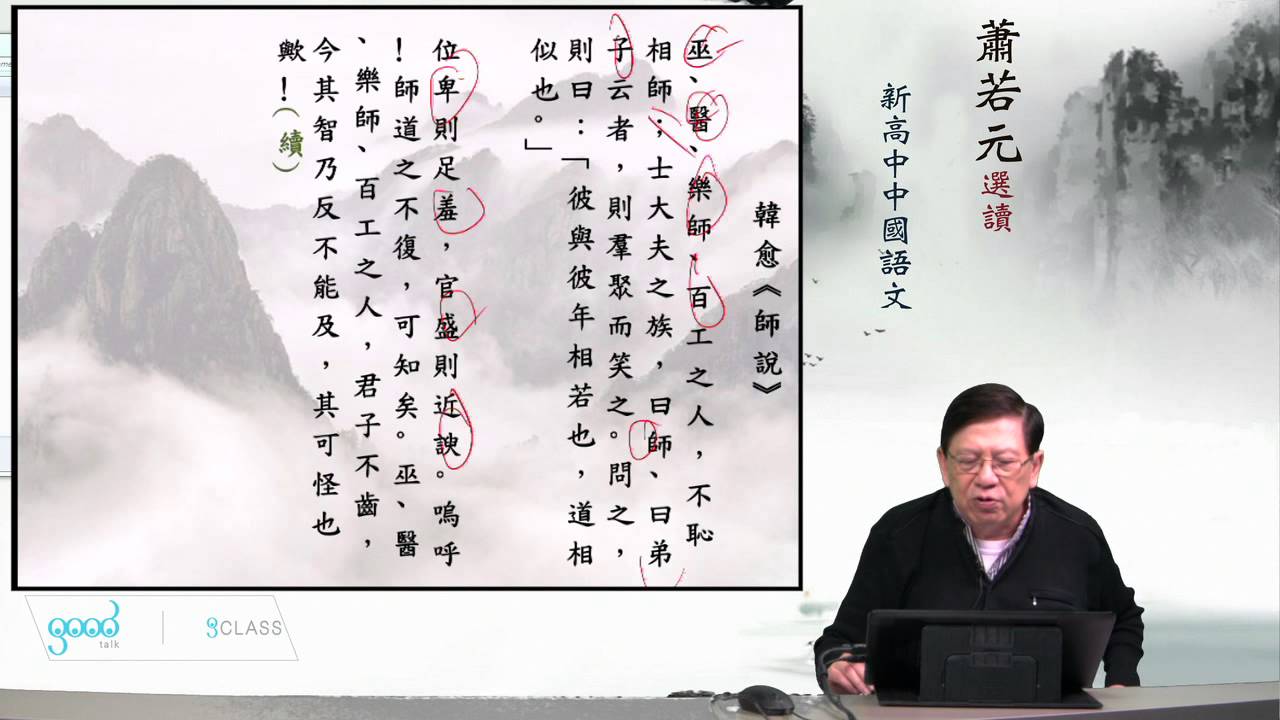 蕭若元
選讀
新高中中國語文
韓愈《師說》
巫、醫、樂師、百工之人，不恥
相師；士大夫之族，曰師、曰弟
子云者，則羣聚而笑之。問之，
則曰：「彼與彼年相若也，道相
似也。」
位卑則足羞，官盛則近諛。嗚呼
！師道之不復，可知矣。巫、醫
、樂師、百工之人，君子不齒，
今其智乃反不能及，其可怪也
歟！（續）
good
talk
3CLASS